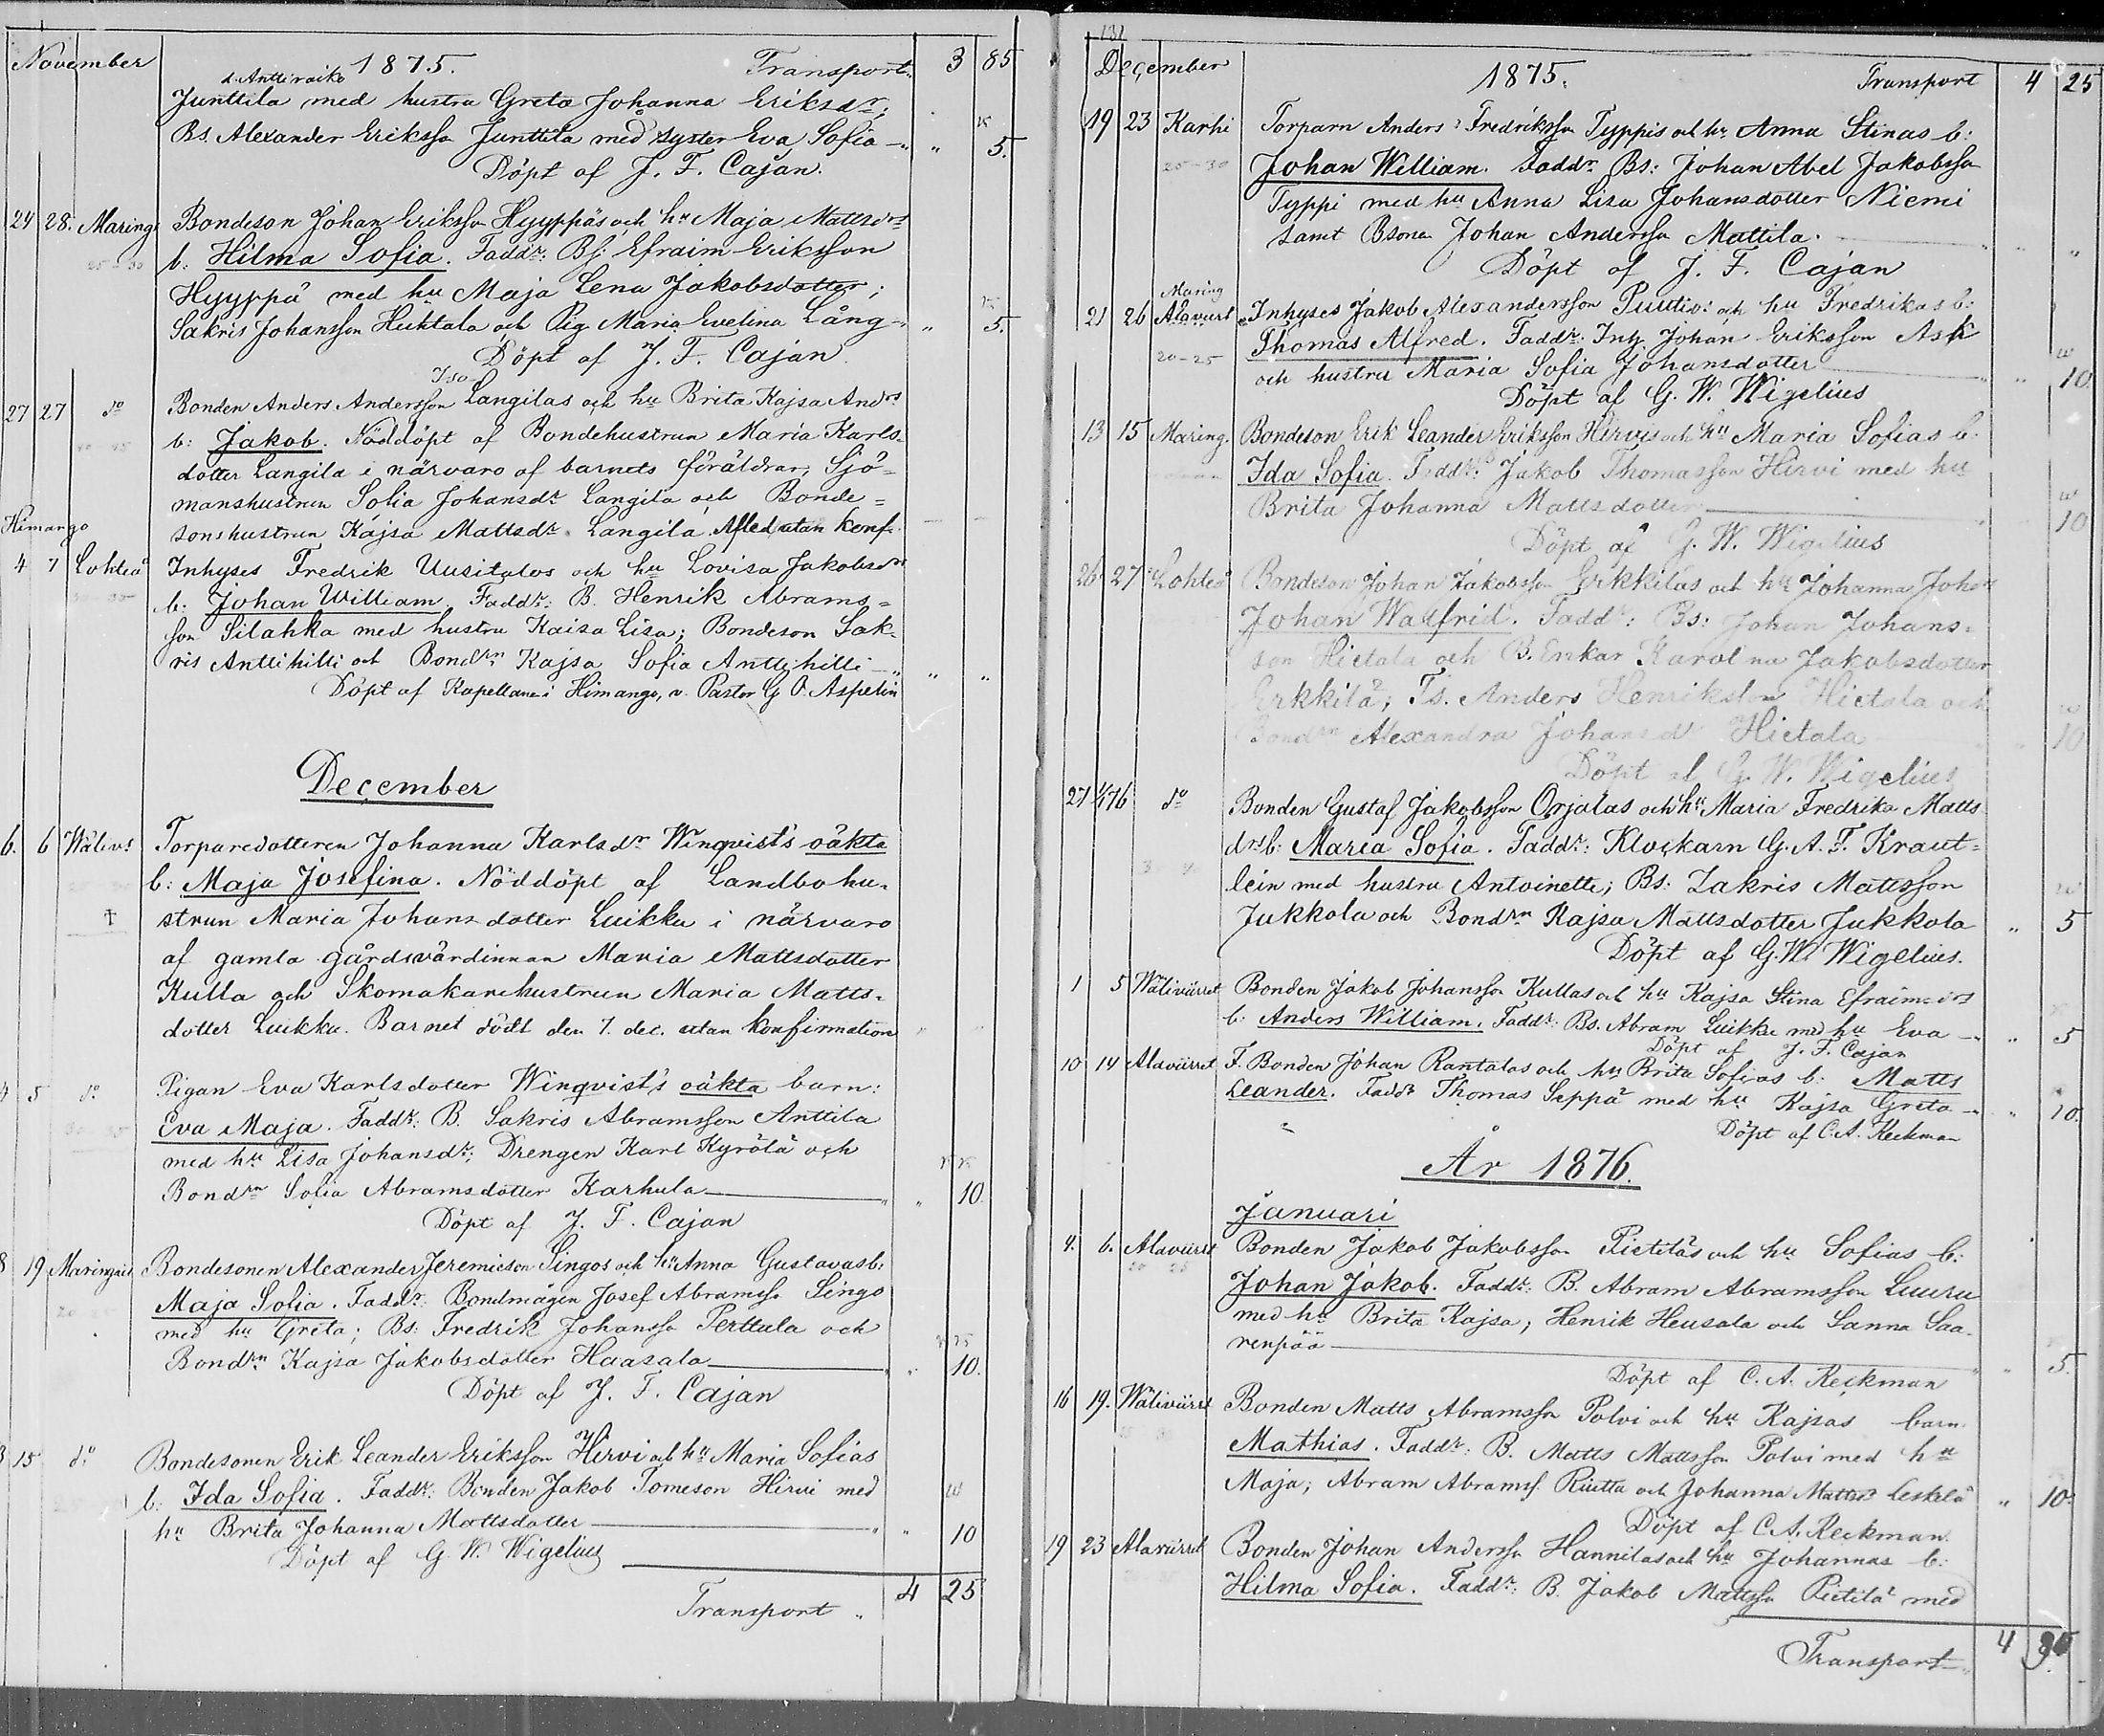 November 1875. Transport. 3 85
d. Anttiroiko
Junttila med hustru Greta Johanna Eriksdr;
Bs. Alexander Eriksson Junttila med syster Eva Sofia „ „ 5.
Döpt af J. F. Cajan.
24 28. Maring Bondeson Johan Eriksson Hyyppäs och hu Maja Mattsdrs
25-30 b: Hilma Sofia. Faddr: Bs: Efraim Eriksson
Hyyppä med hu Maja Lena Jakobsdotter;
Sakris Johansson Huhtala och Pig Maria Evelina Lång „ „ 5.
Döpt af J. F. Cajan
Iso
27 27 do Bonden Anders Andersson Langilas och hu Brita Kajsa Andrs
b: Jakob. Nöddöpt af Bondehustrun Maria Karls-
dotter Langila i närvaro af barnets föräldrar, Sjö-
manshustrun Sofia Johansdr Langila och Bonde=
Himango sonshustrun Kajsa Mattsdr Langila. Afled utan konf.
4 7 Lohteå Inhyses Fredrik Uusitalos och hu Lovisa Jakobsdrs
30-35 b: Johan William. Faddr: B. Henrik Abrams=
son Silahka med hustru Kaisa Lisa; Bondeson Sak-
ris Anttihilli och Bondrn Kajsa Sofia Anttihilli „ „ „
Döpt af Kapellanen i Himango, v. Pastor G O. Aspelin
December
6. 6 Wäliv: Torparedotteren Johanna Karlsdr Winqvist's oäkta
b: Maja Josefina. Nöddöpt af Landbohu-
† strun Maria Johansdotter Luikku i närvaro
af gamla gårdsvärdinnan Maria Mattsdotter
Kulla och Skomakarehustrun Maria Matts-
dotter Luikku. Barnet dödt den 7. dec. utan konfirmation
4 5 do Pigan Eva Karlsdotter Winqvist's oäkta barn:
Eva Maja. Faddr: B. Sakris Abramsson Anttila
med hu Lisa Johansdr; Drengen Karl Kyrölä och
Bondrn Sofia Abramsdotter Karhula „ „ 10.
Döpt af J. F. Cajan
8 19 Maringais Bondesonen Alexander Jeremieson Lingos och hu Anna Gustavas b:
Maja Sofia. Faddr: Bondmågen Josef Abramsso Lingo
med hu Greta; Bs: Fredrik Johansso Perttula och
Bondrn Kajsa Jakobsdotter Haasala „ „ 10.
Döpt af J. F. Cajan
3 15 do Bondesonen Erik Leander Eriksson Hirvi och hu Maria Sofias
b: Ida Sofia. Faddr: Bonden Jakob Tomeson Hirvi med
hu Brita Johanna Mattsdotter „ „ 10
Döpt af G. W. Wigelius
Transport „ 4 25
131
December 1875. Transport 4 25
19 23 Karhi Torparn Anders Fredriksson Typpis och hu Anna Stinas b:
25-30 Johan William. Faddr Bs: Johan Abel Jakobsson
Typpi med hu Anna Lisa Johansdotter Niemi
samt Bsonen Johan Andersson Mattila. „ „ „
Döpt af J. F. Cajan
Maring
21 26 Alaviirt Inhyses Jakob Alexandersson Puutio: och hu Fredrikas b:
20-25 Thomas Alfred. Faddr. Inh. Johan Eriksson Ask
och hustru Maria Sofia Johansdotter „ „ 10.
Döpt af G. W. Wigelius
13 15 Maring. Bondeson Erik Leander Eriksson Hirvis och hu Maria Sofias b.
Ida Sofia. Faddr: Jakob Thomasson Hirvi med hu
Brita Johanna Mattsdotter 10
Döpt af G. W. Wigelius
26 27 Lohteå Bondeson Johan Jakobsson Erkkiläs och hu Johanna Johs
Johan Walfrid. Faddr: Bs: Johan Johans=
son Hietala och B. Enkan Karolina Jakobsdotter
Erkkilä; Ts. Anders Henriksson Hietala och
Bondrn Alexandra Johansdr Hietala 10
Döpt af G. W. Wigelius
27 1/1 76 do Bonden Gustaf Jakobsson Orjalas och hu Maria Fredrika Matts
drs b: Maria Sofia. Faddr: Klockarn G. A. F. Kraut=
lein med hustru Antoinette; Bs: Zakris Mattsson
Jukkola och Bondrn Kajsa Mattsdotter Jukkola „ 5
Döpt af G. W. Wigelius.
1 5 Wäliviirret Bonden Jakob Johansson Kullas och hu Kajsa Stina Efraimsdrs
b: Anders William. Faddr: Bs. Abram Luikku med hu Eva „ „ 5
Döpt af J. F. Cajan
10 14 Alaviirret F. Bonden Johan Rantalas och hu Brita Sofias b: Matts
Leander. Faddr Thomas Seppä med hu Kajsa Greta „ „ 10.
Döpt af C. A. Keckman
År 1876.
Januari
4. 6. Alaviirret Bonden Jakob Jakobsson Pietiläs och hu Sofias b:
20 25 Johan Jakob. Faddr: B. Abram Abramsson Luuru
med hu Brita Kajsa; Henrik Heusala och Sanna Saa-
renpää „ „ 5.
Döpt af C. A. Keckman
16 19. Wäliviirret Bonden Matts Abramsson Polvi och hu Kajsas barn
Mathias. Faddr: B. Matts Mattsson Polvi med hu
Maja; Abram Abramss. Riutta och Johanna Mattsdr Leskelä „ 10.
Döpt af C. A. Keckman.
19 23 Alaviirret Bonden Johan Andersso Hannilas och hu Johannas b:
Hilma Sofia. Faddr: B. Jakob Mattsso Pietilä med
Transport 4